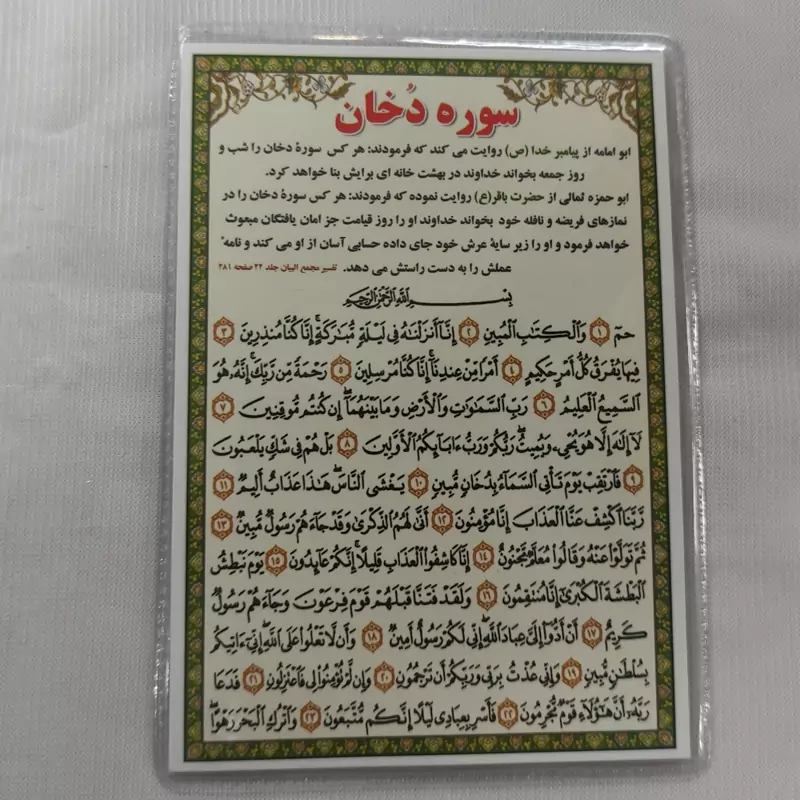 سوره دُخان
ابو امامه از پیامبر خدا (ص) روایت می کند که فرمودند: هر کس سورهٔ دخان را شب و
روز جمعه بخواند خداوند در بهشت خانه ای برایش بنا خواهد کرد.
ابو حمزه ثمالی از حضرت باقر(ع) روایت نموده که فرمودند: هر کس سورهٔ دخان را در
نمازهای فریضه و نافله خود بخواند خداوند او را روز قیامت جز امان یافتگان مبعوث
خواهد فرمود و او را زیر سایهٔ عرش خود جای داده حسابی آسان از او می کند و نامهٔ
عملش را به دست راستش می دهد. تفسیر مجمع البیان جلد ۲۲ صفحه ۲۸۱
بِسْمِ اللَّهِ الرَّحْمَنِ الرَّحِيمِ
حمٓ ﴿۱﴾ وَالْكِتَابِ الْمُبِينِ ﴿۲﴾ إِنَّا أَنزَلْنَاهُ فِي لَيْلَةٍ مُّبَارَكَةٍ ۚ إِنَّا كُنَّا مُنذِرِينَ ﴿۳﴾
فِيهَا يُفْرَقُ كُلُّ أَمْرٍ حَكِيمٍ ﴿۴﴾ أَمْرًا مِّنْ عِندِنَا ۚ إِنَّا كُنَّا مُرْسِلِينَ ﴿۵﴾ رَحْمَةً مِّن رَّبِّكَ ۚ إِنَّهُۥ هُوَ
السَّمِيعُ الْعَلِيمُ ﴿۶﴾ رَبِّ السَّمَٰوَٰتِ وَالْأَرْضِ وَمَا بَيْنَهُمَا ۖ إِن كُنتُم مُّوقِنِينَ ﴿۷﴾
لَآ إِلَٰهَ إِلَّا هُوَ يُحْيِۦ وَيُمِيتُ ۖ رَبُّكُمْ وَرَبُّ ءَابَآئِكُمُ الْأَوَّلِينَ ﴿۸﴾ بَلْ هُمْ فِي شَكٍّ يَلْعَبُونَ
﴿۹﴾ فَارْتَقِبْ يَوْمَ تَأْتِي السَّمَآءُ بِدُخَانٍ مُّبِينٍ ﴿۱۰﴾ يَغْشَى النَّاسَ ۖ هَٰذَا عَذَابٌ أَلِيمٌ ﴿۱۱﴾
رَّبَّنَا اكْشِفْ عَنَّا الْعَذَابَ إِنَّا مُؤْمِنُونَ ﴿۱۲﴾ أَنَّىٰ لَهُمُ الذِّكْرَىٰ وَقَدْ جَآءَهُمْ رَسُولٌ مُّبِينٌ ﴿۱۳﴾
ثُمَّ تَوَلَّوْا عَنْهُ وَقَالُوا مُعَلَّمٌ مَّجْنُونٌ ﴿۱۴﴾ إِنَّا كَاشِفُوا الْعَذَابِ قَلِيلًا ۚ إِنَّكُمْ عَآئِدُونَ ﴿۱۵﴾ يَوْمَ نَبْطِشُ
الْبَطْشَةَ الْكُبْرَىٰ إِنَّا مُنتَقِمُونَ ﴿۱۶﴾ وَلَقَدْ فَتَنَّا قَبْلَهُمْ قَوْمَ فِرْعَوْنَ وَجَآءَهُمْ رَسُولٌ
كَرِيمٌ ﴿۱۷﴾ أَنْ أَدُّوٓا إِلَيَّ عِبَادَ اللَّهِ ۖ إِنِّي لَكُمْ رَسُولٌ أَمِينٌ ﴿۱۸﴾ وَأَن لَّا تَعْلُوا عَلَى اللَّهِ ۖ إِنِّيٓ ءَاتِيكُم
بِسُلْطَٰنٍ مُّبِينٍ ﴿۱۹﴾ وَإِنِّي عُذْتُ بِرَبِّي وَرَبِّكُمْ أَن تَرْجُمُونِ ﴿۲۰﴾ وَإِن لَّمْ تُؤْمِنُوا لِي فَاعْتَزِلُونِ ﴿۲۱﴾ فَدَعَا
رَبَّهُۥٓ أَنَّ هَٰٓؤُلَآءِ قَوْمٌ مُّجْرِمُونَ ﴿۲۲﴾ فَأَسْرِ بِعِبَادِي لَيْلًا إِنَّكُم مُّتَّبَعُونَ ﴿۲۳﴾ وَاتْرُكِ الْبَحْرَ رَهْوًا ۖ